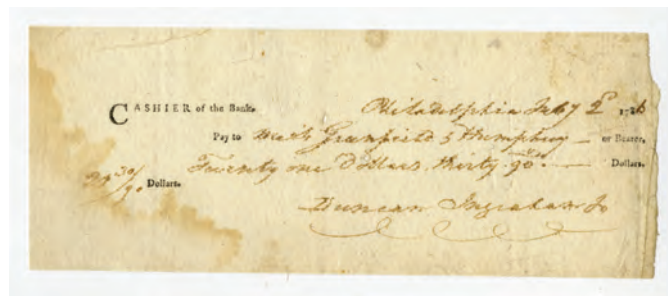 CASHIER of the Bank.
Philadelphia July 2d 1786
Pay to or Bearer,
Twenty one Dollars thirty 90ths Dollars.
21 30/90 Dollars.
Duncan Ingraham Jr